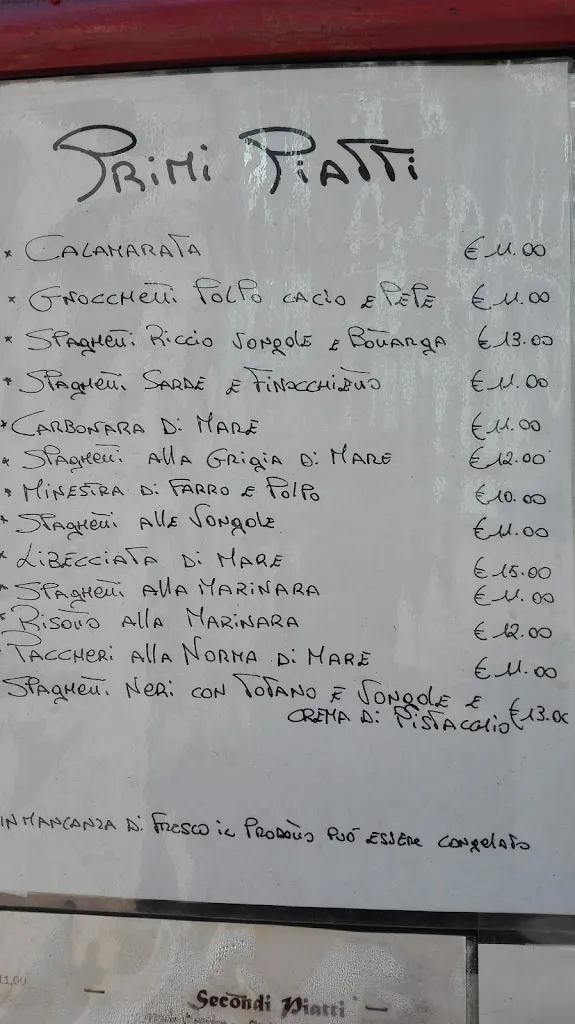 PRIMI PIATTI
* CALAMARATA € 11.00
* GNOCCHETTI POLPO CACIO E PEPE € 11.00
* SPAGHETTI RICCIO VONGOLE E BOTTARGA € 13.00
* SPAGHETTI SARDE E FINOCCHIETTO € 11.00
* CARBONARA DI MARE € 11.00
* SPAGHETTI ALLA GRIGIA DI MARE € 12.00
* MINESTRA DI FARRO E POLPO € 10.00
* SPAGHETTI ALLE VONGOLE € 11.00
* LIBECCIATA DI MARE € 15.00
* SPAGHETTI ALLA MARINARA € 11.00
* RISOTTO ALLA MARINARA € 12.00
PACCHERI ALLA NORMA DI MARE € 11.00
SPAGHETTI NERI CON TOTANO E VONGOLE E
CREMA DI PISTACCHIO € 13.00
IN MANCANZA DI FRESCO IL PRODOTTO PUÓ ESSERE CONGELATO
11,00
— Secondi Piatti —